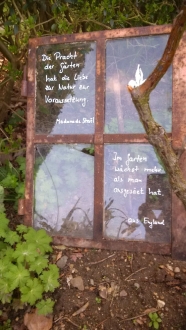 Die Pracht
der Gärten
hat die Liebe
zur Natur zur
Voraussetzung.
Madame de Staël
Im Garten
wächst mehr
als man
ausgesät hat.
Aus England